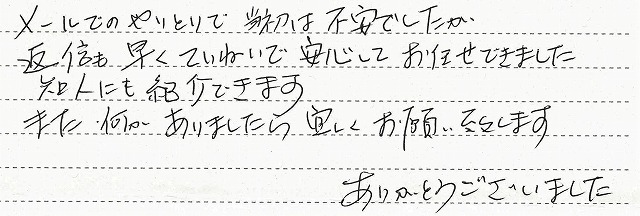 メールでのやりとりで当初は不安でしたが
返信も早くていねいで安心してお任せできました
知人にも紹介できます
また何かありましたら宜しくお願い致します
ありがとうございました